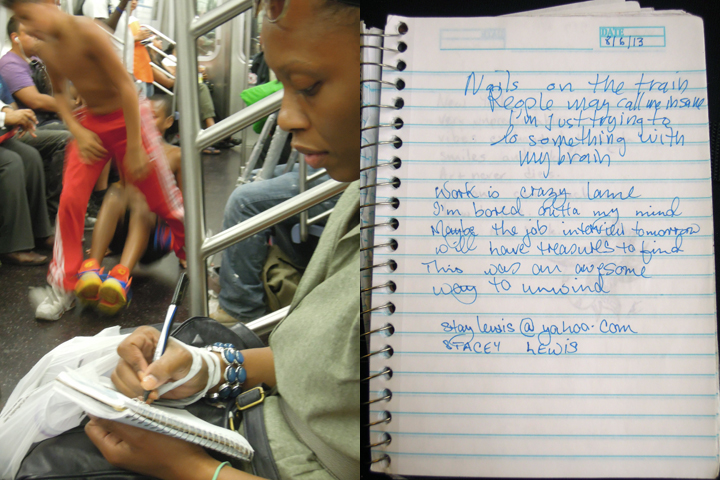 DATE
8/6/13
Nails on the train
People may call me insane
I'm just trying to
do something with
my brain
Work is crazy lame
I'm bored outta my mind
Maybe the job interview tomorrow
will have treasures to find
This was an awesome
way to unwind
staylewis@yahoo.com
STACEY LEWIS